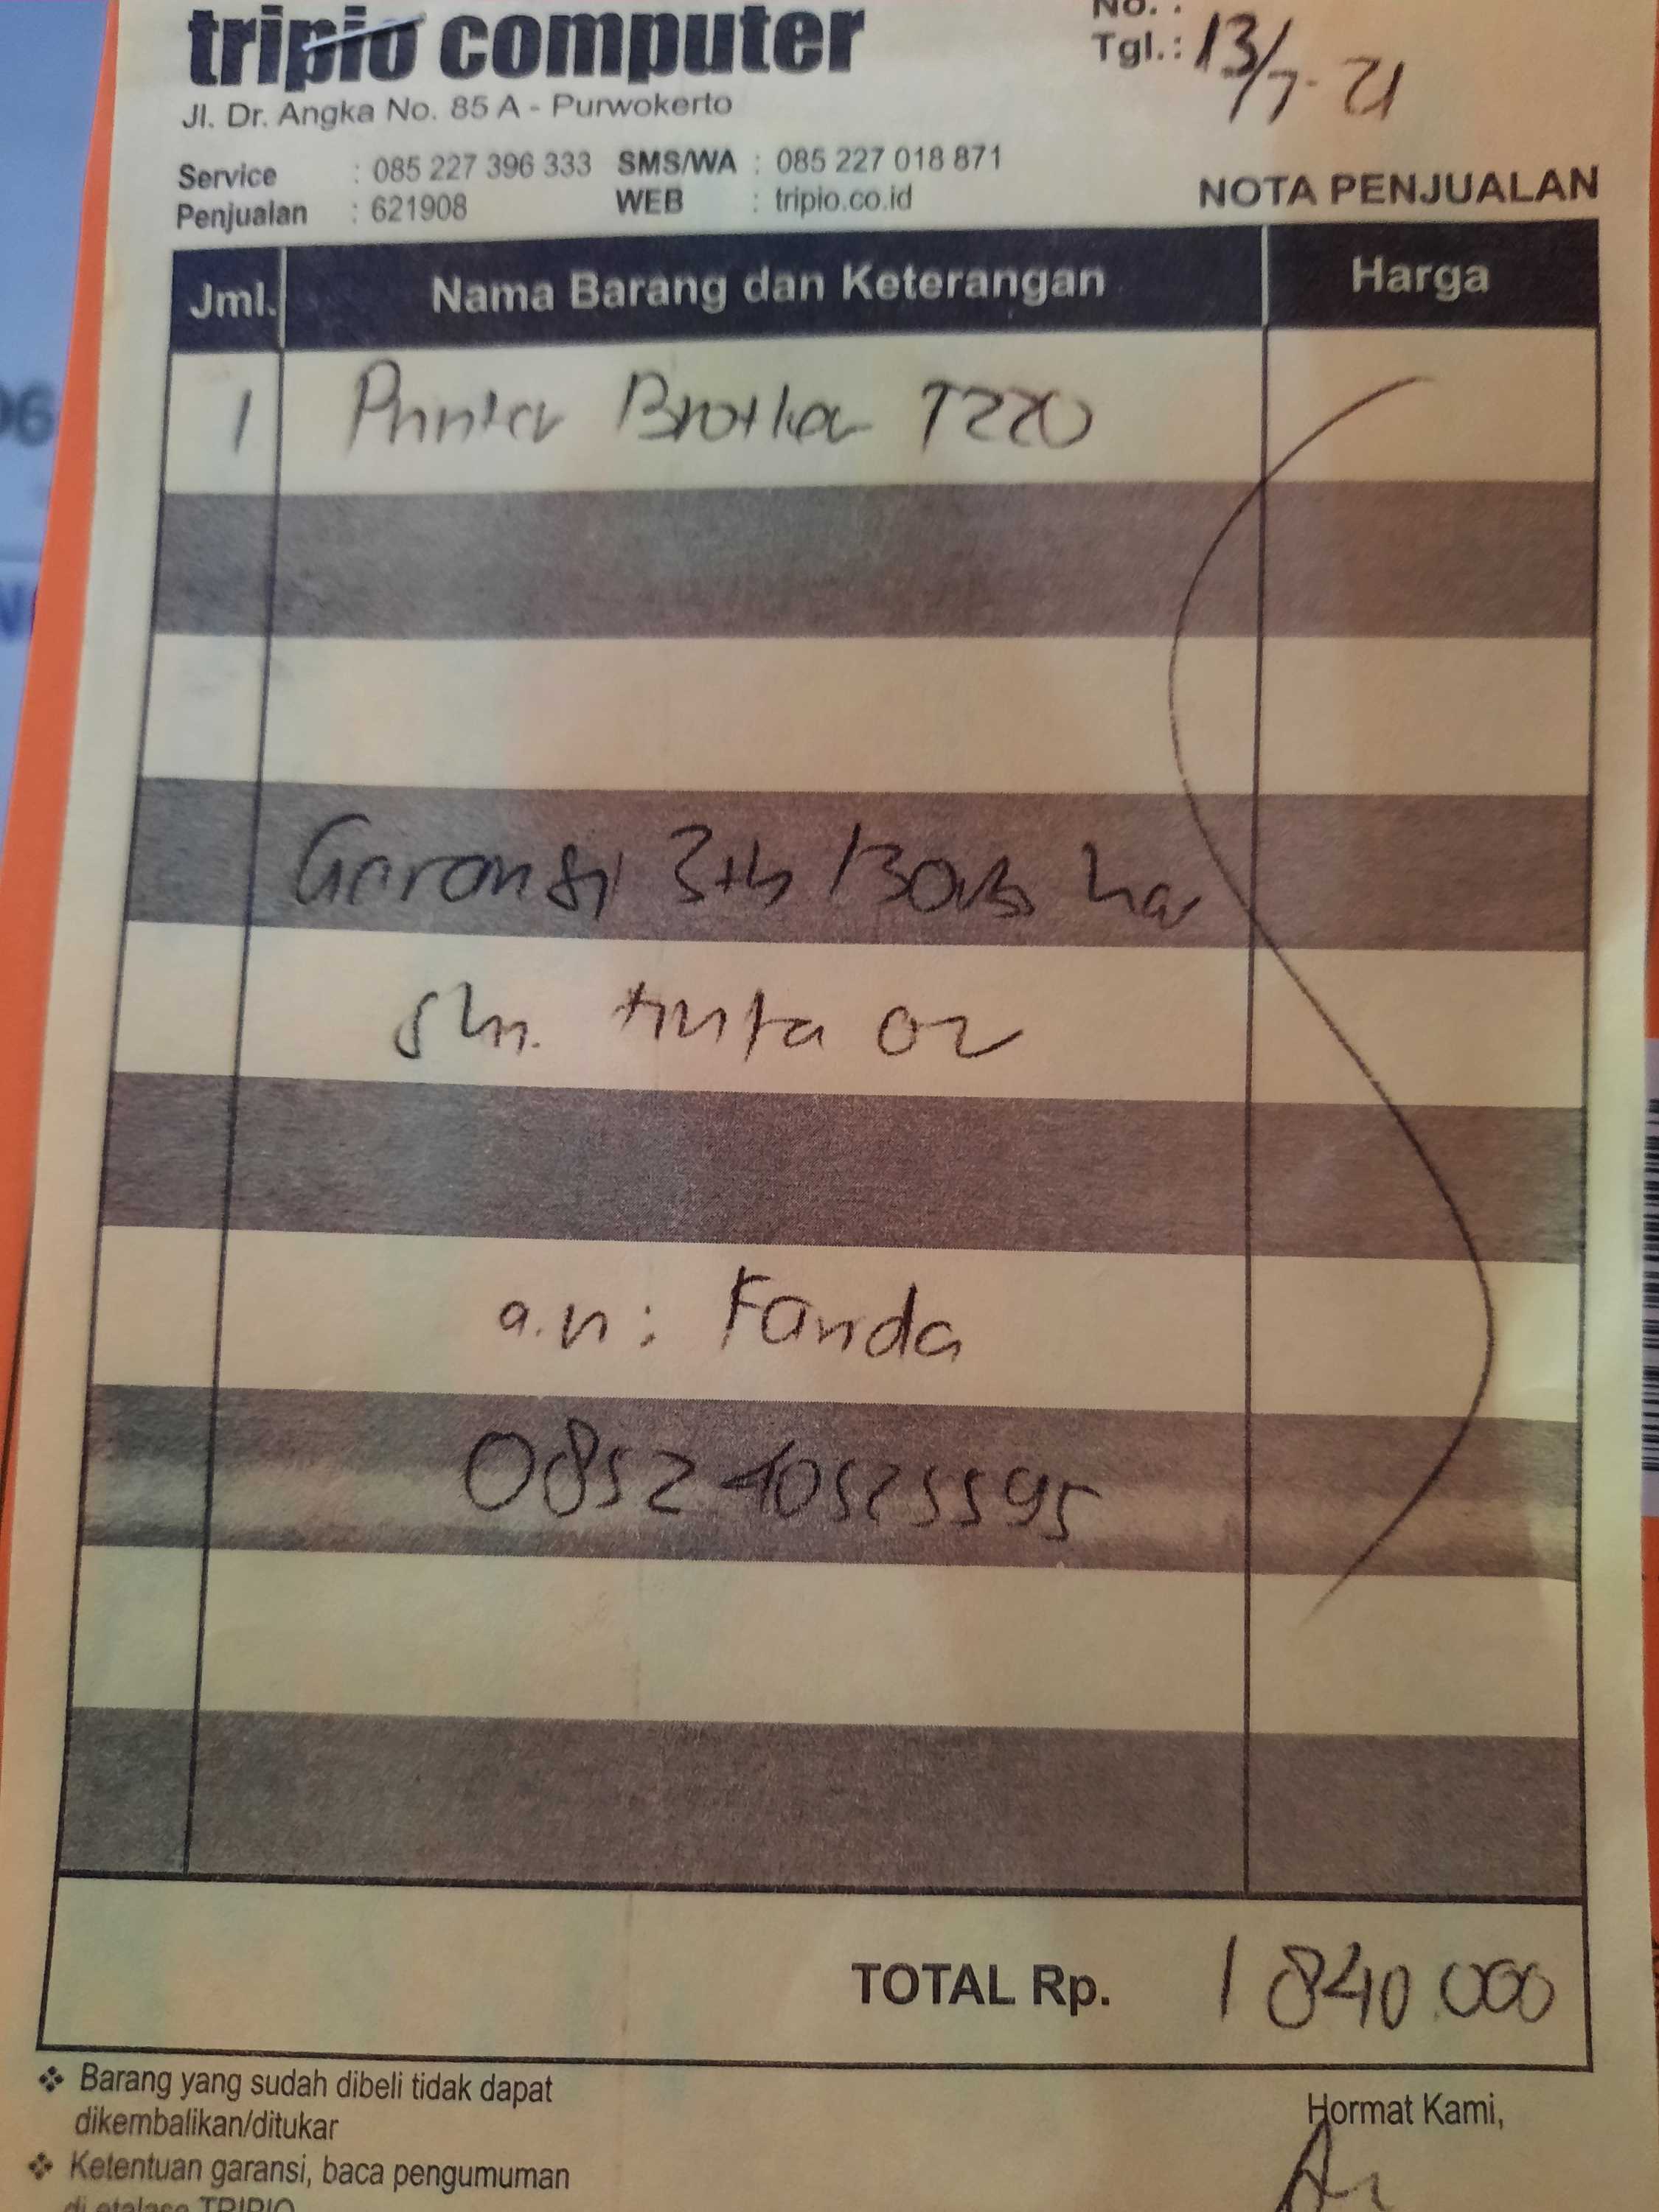 tripio computer
No. :
Tgl.: 13/7-21
Jl. Dr. Angka No. 85 A - Purwokerto
Service : 085 227 396 333 SMS/WA : 085 227 018 871
Penjualan : 621908 WEB : tripio.co.id
NOTA PENJUALAN
Jml. Nama Barang dan Keterangan Harga
1 Printer Brother T220
Garansi 3th
tinta
a.n: Fanda
TOTAL Rp. 1 840.000
Barang yang sudah dibeli tidak dapat
dikembalikan/ditukar
Hormat Kami,
Ketentuan garansi, baca pengumuman
di etalase TRIPIO